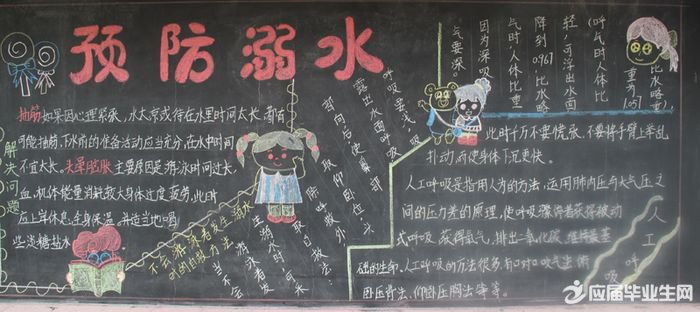 预防溺水
抽筋 如果因心理紧张,水太凉或待在水里时间太长,都有
可能抽筋,下水前的准备活动应当充分,在水中时间
不宜太长。头晕脑胀 主要原因是游泳时间过长,
血,机体能量消耗较大身体过度疲劳,此时
应上岸休息,全身保温,并适当地喝
些淡糖盐水
解决问题
不会游泳者发生溺水
时的自救方法
当不会
游泳者发
生溺水时,可采
取自救法:
除呼救外,
取仰卧位,头
部向后,使鼻部
露出水面呼吸
呼吸要浅,吸
气要深。
因为深吸
气时,人体比重
降到0.967,比水略
轻,可浮出水面
(呼气时人体比
重为1.057
比水略重)
此时千万不要慌张,不要将手臂上举乱
扑动,而使身体下沉更快。
人工呼吸
人工呼吸是指用人为的方法,运用肺内压与大气压之
间的压力差的原理,使呼吸骤停者获得被动
式呼吸,获得氧气,排出二氧化碳,维持最基
础的生命,人工呼吸的方法很多,有口对口吹气法,俯
卧压背法,仰卧压胸法等等。
应届毕业生网